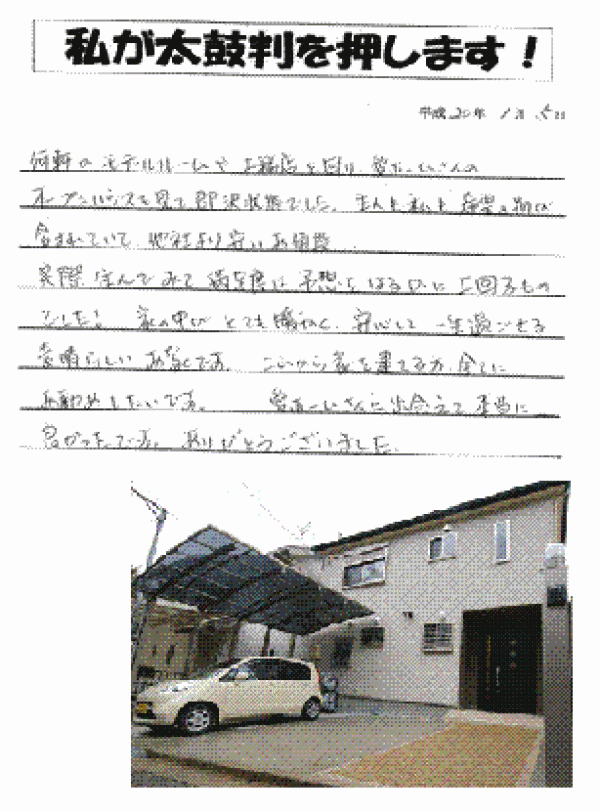 私が太鼓判を押します！
平成20年 1月 5日
何軒のモデルルームや工務店を回り、
オープンハウスを見て即決状態でした。主人も私も希望が
含まれていて、他社より安いお値段
実際住んでみて満足度は予想をはるかに上回るもの
でした！ 家の中が とても暖かく、安心して 一生過ごせる
素晴らしい お家です。 これから家を建てる方 全てに
お勧めしたいです。 さんに出会えて 本当に
良かったです。 ありがとうございました。